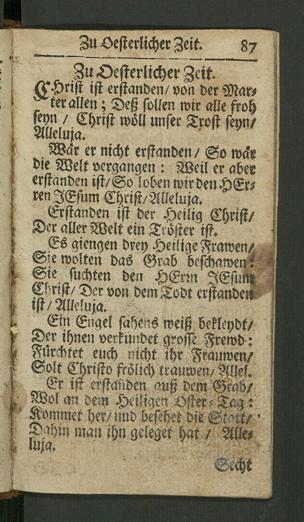 Zu Oesterlicher Zeit. 87
Zu Oesterlicher Zeit.
CHrist ist erstanden/ von der Mar-
ter allen; Deß sollen wir alle froh
seyn / Christ wöll unser Trost seyn/
Alleluja.
Wär er nicht erstanden/ So wär
die Welt vergangen: Weil er aber
erstanden ist/ So loben wir den HEr-
ren JEsum Christ/ Alleluja.
Erstanden ist der Heilig Christ/
Der aller Welt ein Tröster ist.
Es giengen drey Heilige Frawen/
Sie wolten das Grab beschawen:
Sie suchten den HErrn JEsum
Christ/ Der von dem Todt erstanden
ist/ Alleluja.
Ein Engel sahens weiß bekleydt/
Der ihnen verkündet grosse Frewd:
Fürchtet euch nicht ihr Frauwen/
Solt Christo frölich trauwen/ Allel.
Er ist erstanden auß dem Grab/
Wol an dem Heiligen Oster-Tag:
Kommet her/ und besehet die Statt/
Dahin man ihn geleget hat / Alle-
luja.
Secht